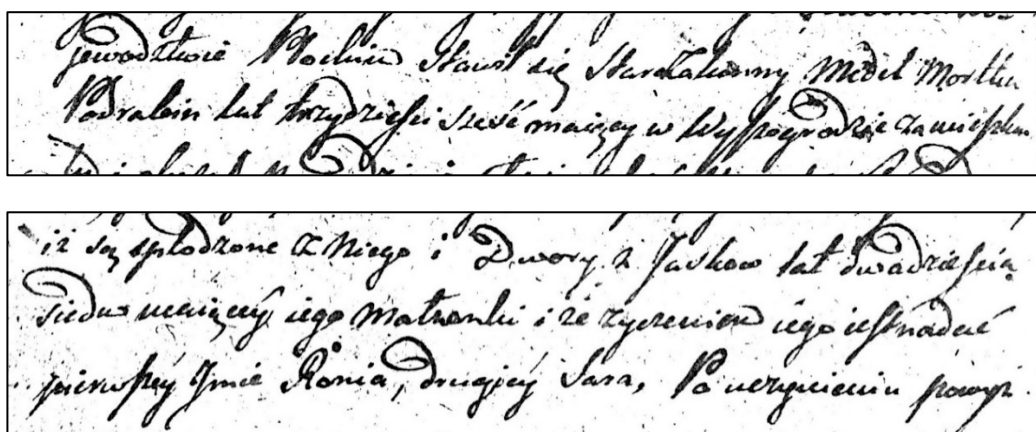 jewodztwie Płockim stawił się Starozakonny Mosiek Mortka
Podrabin lat trzydzieści sześć maiący w Wyszogrodzie zamieszka
iż są spłodzone z Niego i Dwory z Jaskow lat dwadzieścia
siedm maiącey iego Małżonki i że życzeniem iego iest nadać
pierwszey Imie Ronia, drugiey Sara, Po uczynieniu powyż.